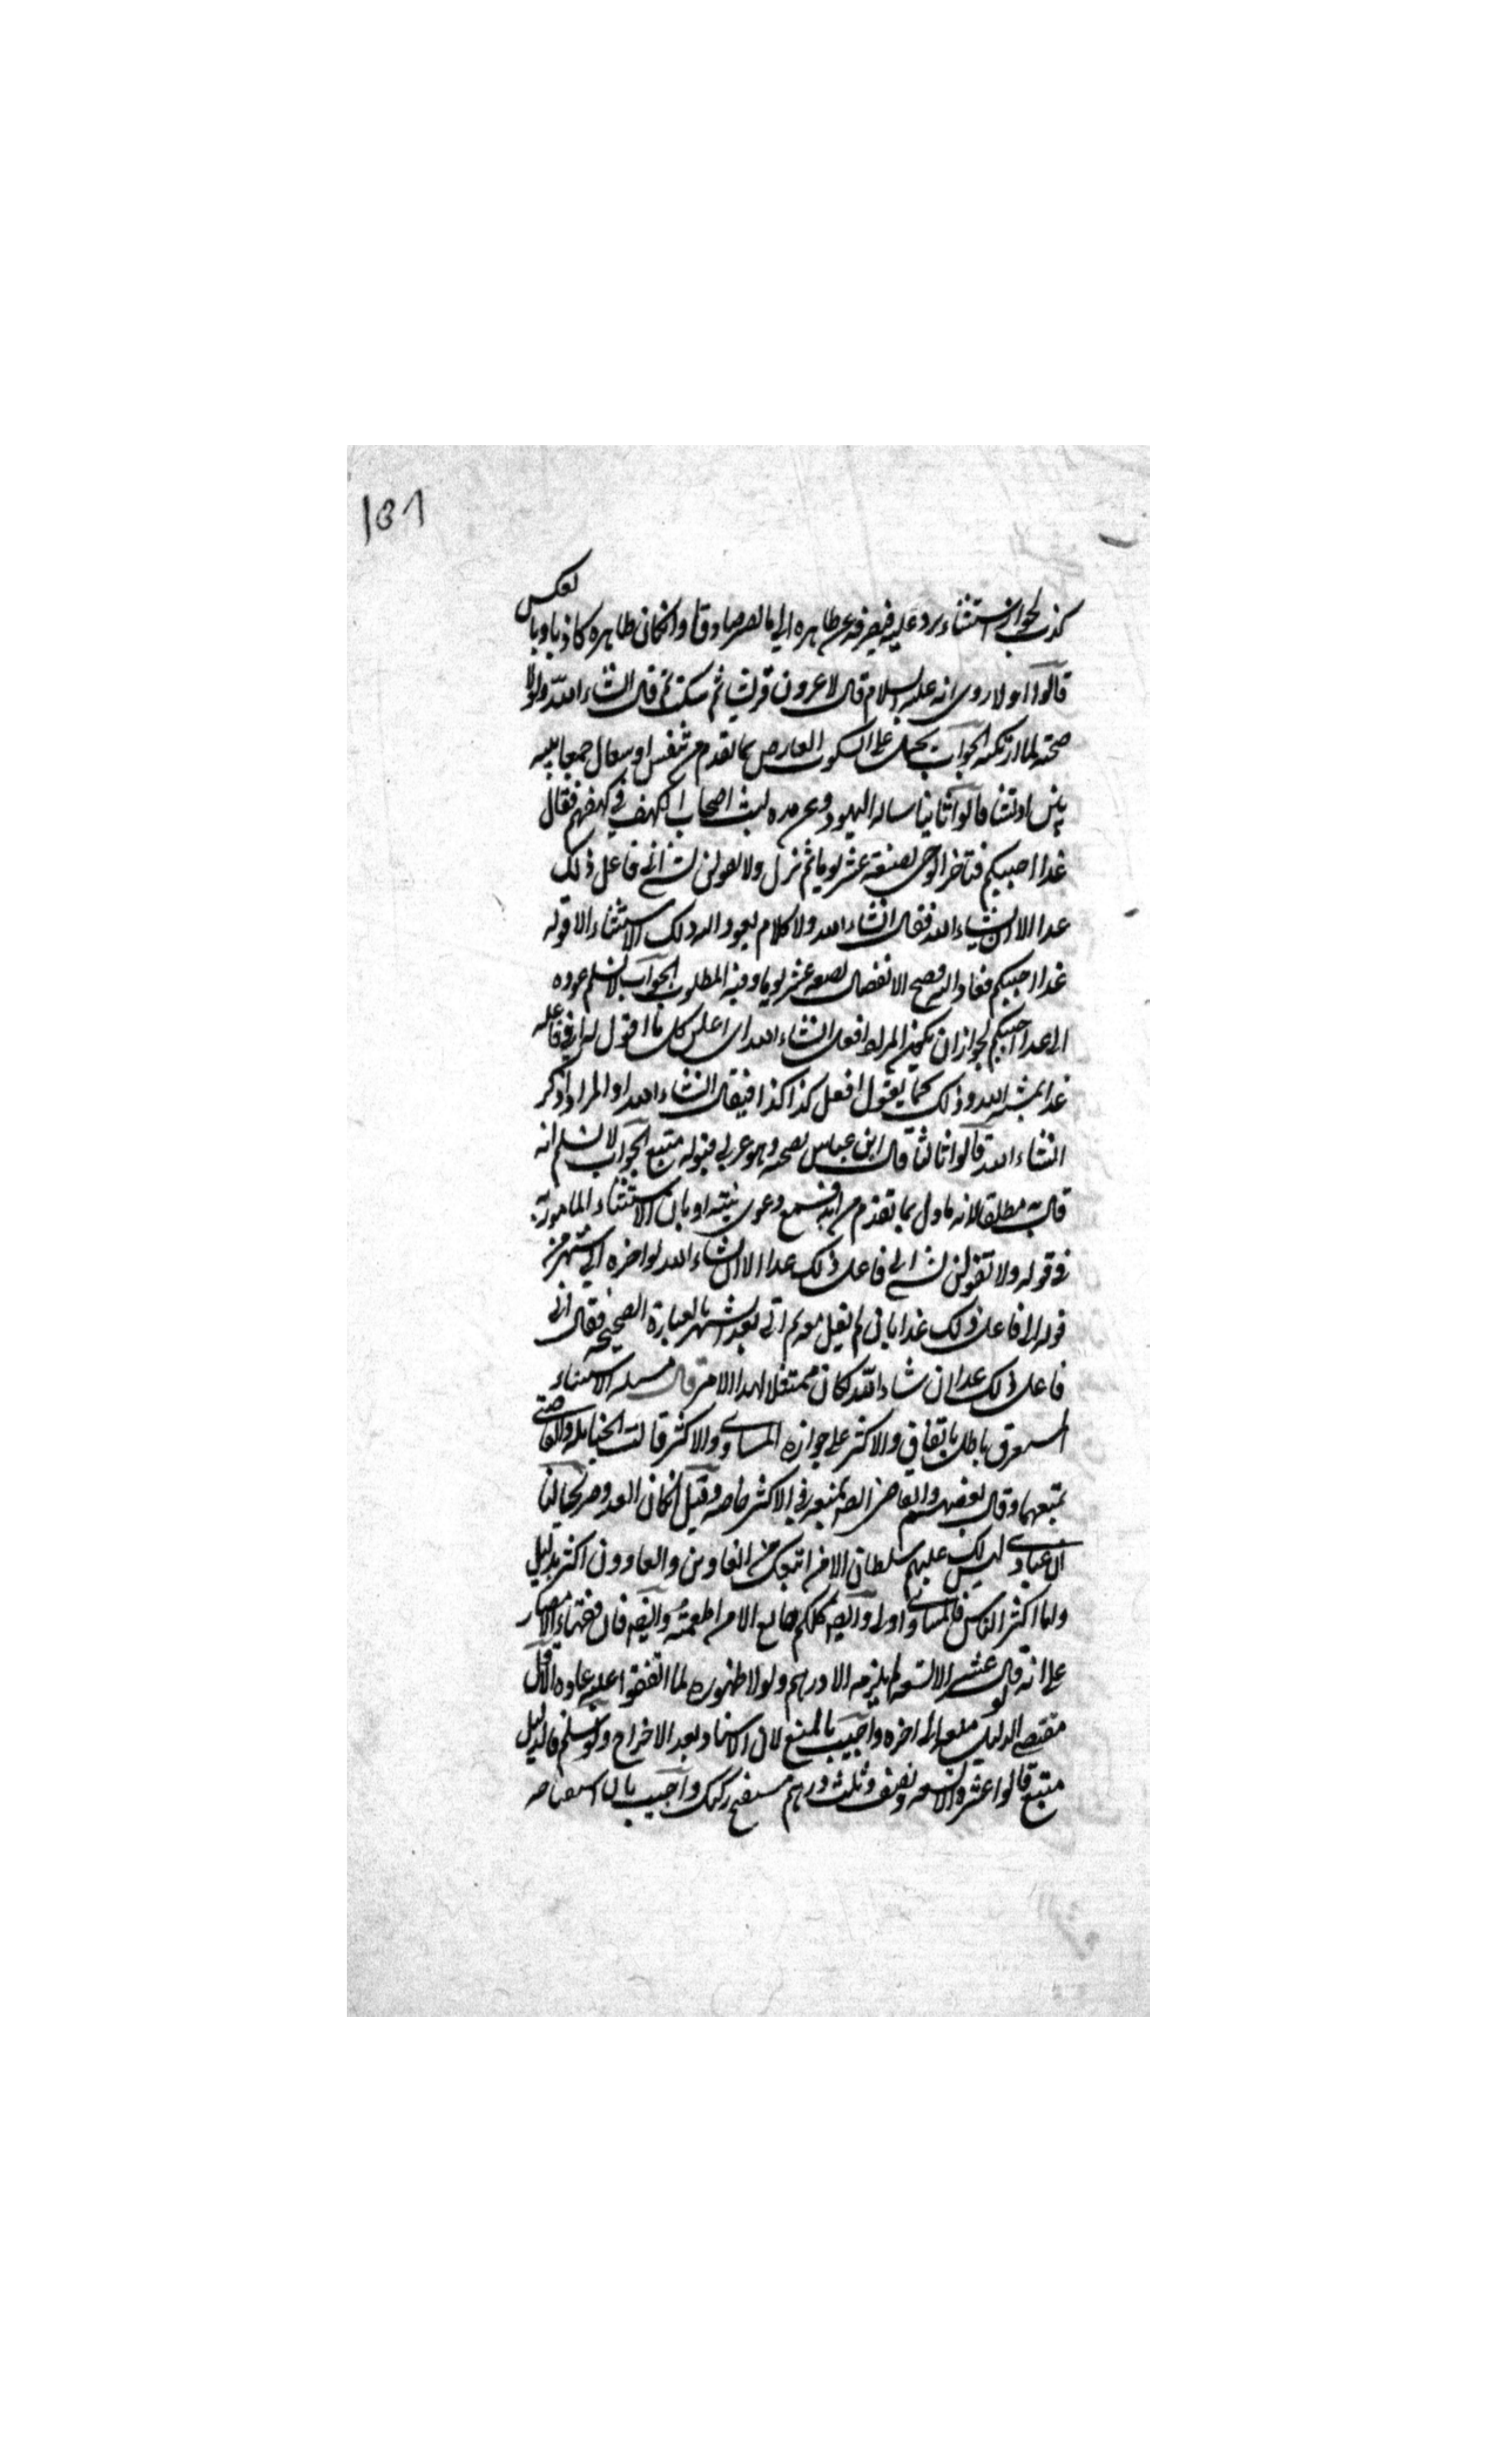 بالعكس
كذب لجواز استثناء يرد عليه فيصرفه عن ظاهره الى ما يصير صادقا وانكان ظاهره كاذبا وبا
قالوا اولا روى انه عليه السلام قال لاغزون قريشا ثم سكت ثم قال انشاء الله ولولا
صحته لما ارتكبه الجواب يحمل على السكوت العارض بما تقدم من تنفس او سعال جمعا بينه
وبين ادلتنا قالوا ثانيا ساله اليهود عن مده لبث اصحاب الكهف في كهفهم فقال
غدا اجيبكم فتاخر الوحى بضعة عشر يوما ثم نزل ولا تقولن لشئ انى فاعل ذلك
غدا الا ان يشاء الله فقال انشاء الله ولا كلام يعود اليه ذلك الاستثناء الا قوله
غدا اجيبكم فعاد اليه فصح الانفصال بضعه عشر يوما وفيه المطلوب الجواب لا نسلم عوده
الى غدا اجيبكم لجواز ان يكون المراد افعل انشاء الله اى اعلق كل ما اقول له انى فاعله
غدا بمشية الله وذلك كما يقول افعل كذا كذا فيقال انشاء الله او المراد اذكر
انشاء الله قالوا ثالثا قال ابن عباس بصحته وهو عربى فقوله متبع الجواب لا نسلم انه
قال به مطلقا لانه ماول بما تقدم من انه فيسمع دعوى نيته او بان الاستثناء المامور به
فى قوله ولا تقولن لشئ انى فاعل ذلك غدا الا ان يشاء الله لو اخره الى شهر من
قوله انى فاعل ذلك غدا بانى لم نقل معه ثم اتى بعد الشهر بالعبارة الصحيحه فقال انى
فاعل ذلك غدا ان شاء الله لكان ممتثلا لهذا الامر قال مسئله الاستثناء
المستغرق باطل باتفاق والاكثر على جوازه المساوى والاكثر قالت الحنابله والقاضى
بمنعهما وقال بعضهم والقاضى ايضا بمنعه فى الاكثر خاصه وقيل انكان العدد صريحا لنا
ان عبادى ليس لك عليهم سلطان الا من اتبعك من الغاوين والغاوون اكثر بدليل
وما اكثر الناس فالمساوى اولى وايضا كلكم جائع الا من اطعمته وايضا فان فقهاء الامصار
على انه لو قال عشره الا تسعه لم يلزمه الا درهم ولولا ظهوره لما اتفقوا عليه عاده الاقل
مقتضى الدليل منعه الى اخره واجيب بالمنع لان الاسناد بعد الاخراج ولو سلم فالدليل
متبع قالوا عشره الا تسعه ونصف وثلث درهم مستقبح ركيك واجيب بان استقباحه